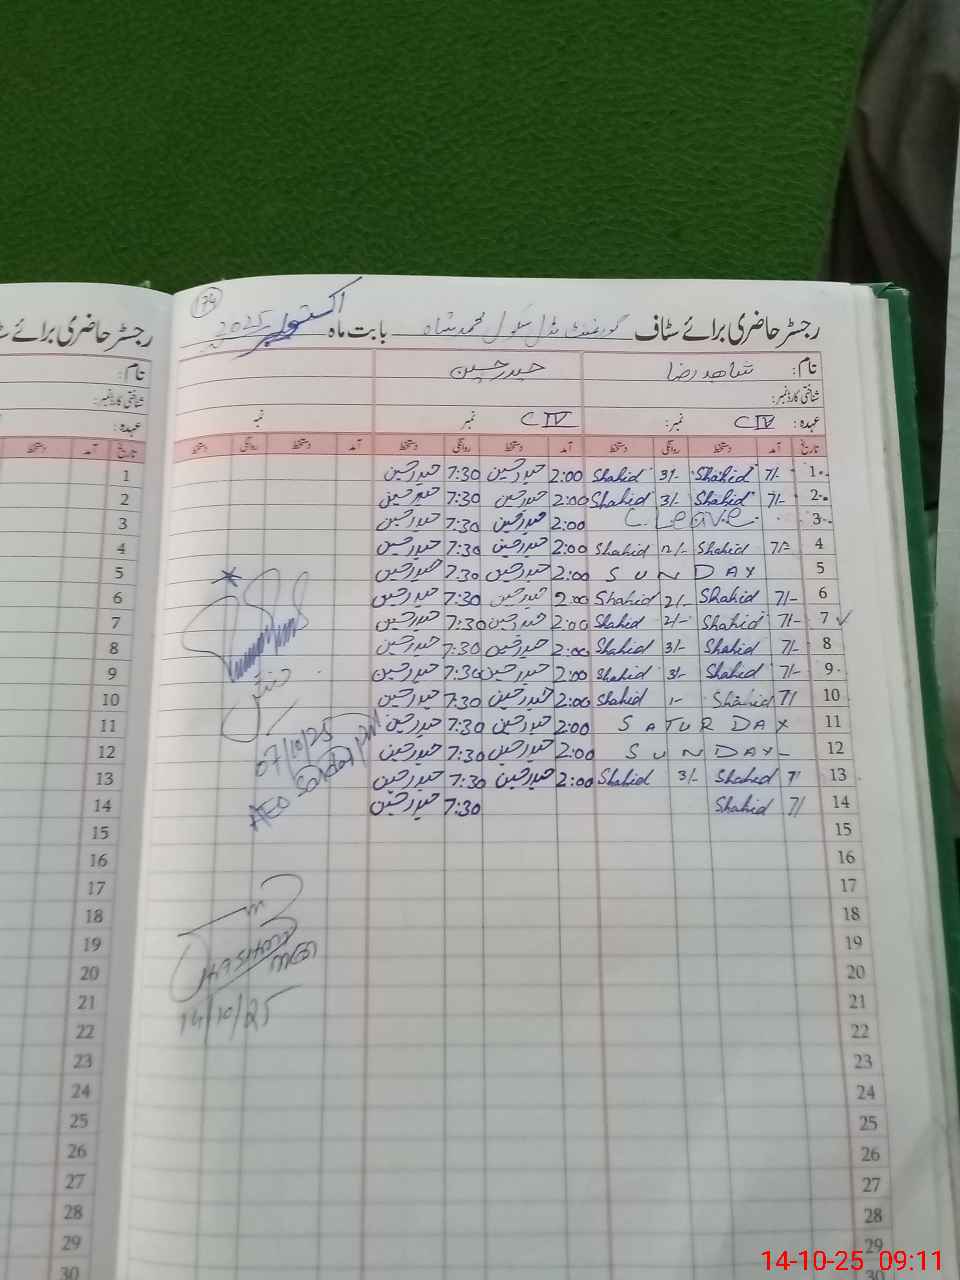 74
رجسٹر حاضری برائے سٹاف گورنمنٹ مڈل سکول محمد شاہ بابت ماہ اکتوبر 2025
نام: شاہد رضا حیدر حسین
شناختی کارڈ نمبر:
عہدہ: CIV نمبر: CIV نمبر
تاریخ آمد دستخط روانگی دستخط آمد دستخط روانگی دستخط آمد دستخط روانگی دستخط
1 7/- Shahid 3/- Shahid 2:00 حیدر حسین 7:30 حیدر حسین
2 7/- Shahid 3/- Shahid 2:00 حیدر حسین 7:30 حیدر حسین
3 C Leave 2:00 حیدر حسین 7:30 حیدر حسین
4 7/- Shahid 12/- Shahid 2:00 حیدر حسین 7:30 حیدر حسین
5 SUNDAY 2:00 حیدر حسین 7:30 حیدر حسین
6 7/- Shahid 2/- Shahid 2:00 حیدر حسین 7:30 حیدر حسین
7 7/- Shahid 2/- Shahid 2:00 حیدر حسین 7:30 حیدر حسین
8 7/- Shahid 3/- Shahid 2:00 حیدر حسین 7:30 حیدر حسین
9 7/- Shahid 3/- Shahid 2:00 حیدر حسین 7:30 حیدر حسین
10 7/ Shahid 1- Shahid 2:00 حیدر حسین 7:30 حیدر حسین
11 SATURDAY 2:00 حیدر حسین 7:30 حیدر حسین
12 SUNDAY 2:00 حیدر حسین 7:30 حیدر حسین
13 7/ Shahid 3/- Shahid 2:00 حیدر حسین 7:30 حیدر حسین
14 7/ Shahid 7:30 حیدر حسین
15
16
17
18
19
20
21
22
23
24
25
26
27
28
29
30
07/10/25
AEO
14/10/25
رجسٹر حاضری برائے
نام:
شناختی کارڈ نمبر:
عہدہ:
تاریخ آمد دستخط
1
2
3
4
5
6
7
8
9
10
11
12
13
14
15
16
17
18
19
20
21
22
23
24
25
26
27
28
29
30
14-10-25 09:11